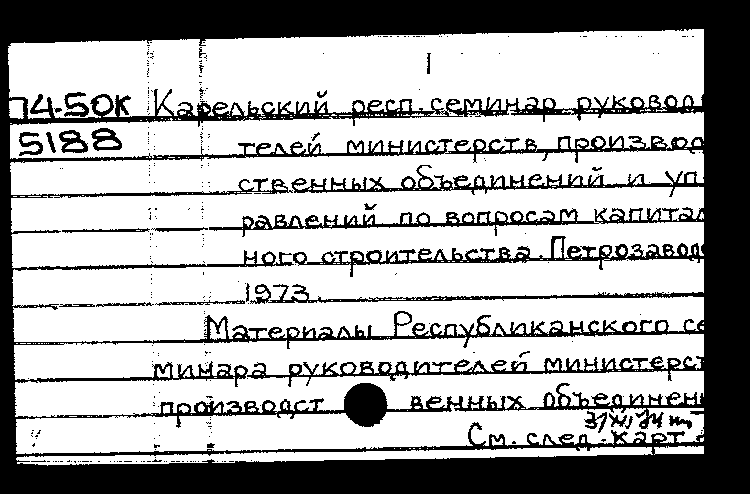 1
74-50К Карельский респ. семинар руковод
5188 телей министерств, производ
ственных объединений и уп
равлений по вопросам капитал
ного строительства. Петрозаводс
1973.
Материалы Республиканского се
минара руководителей министерст
производст венных объединен
См. след. карт